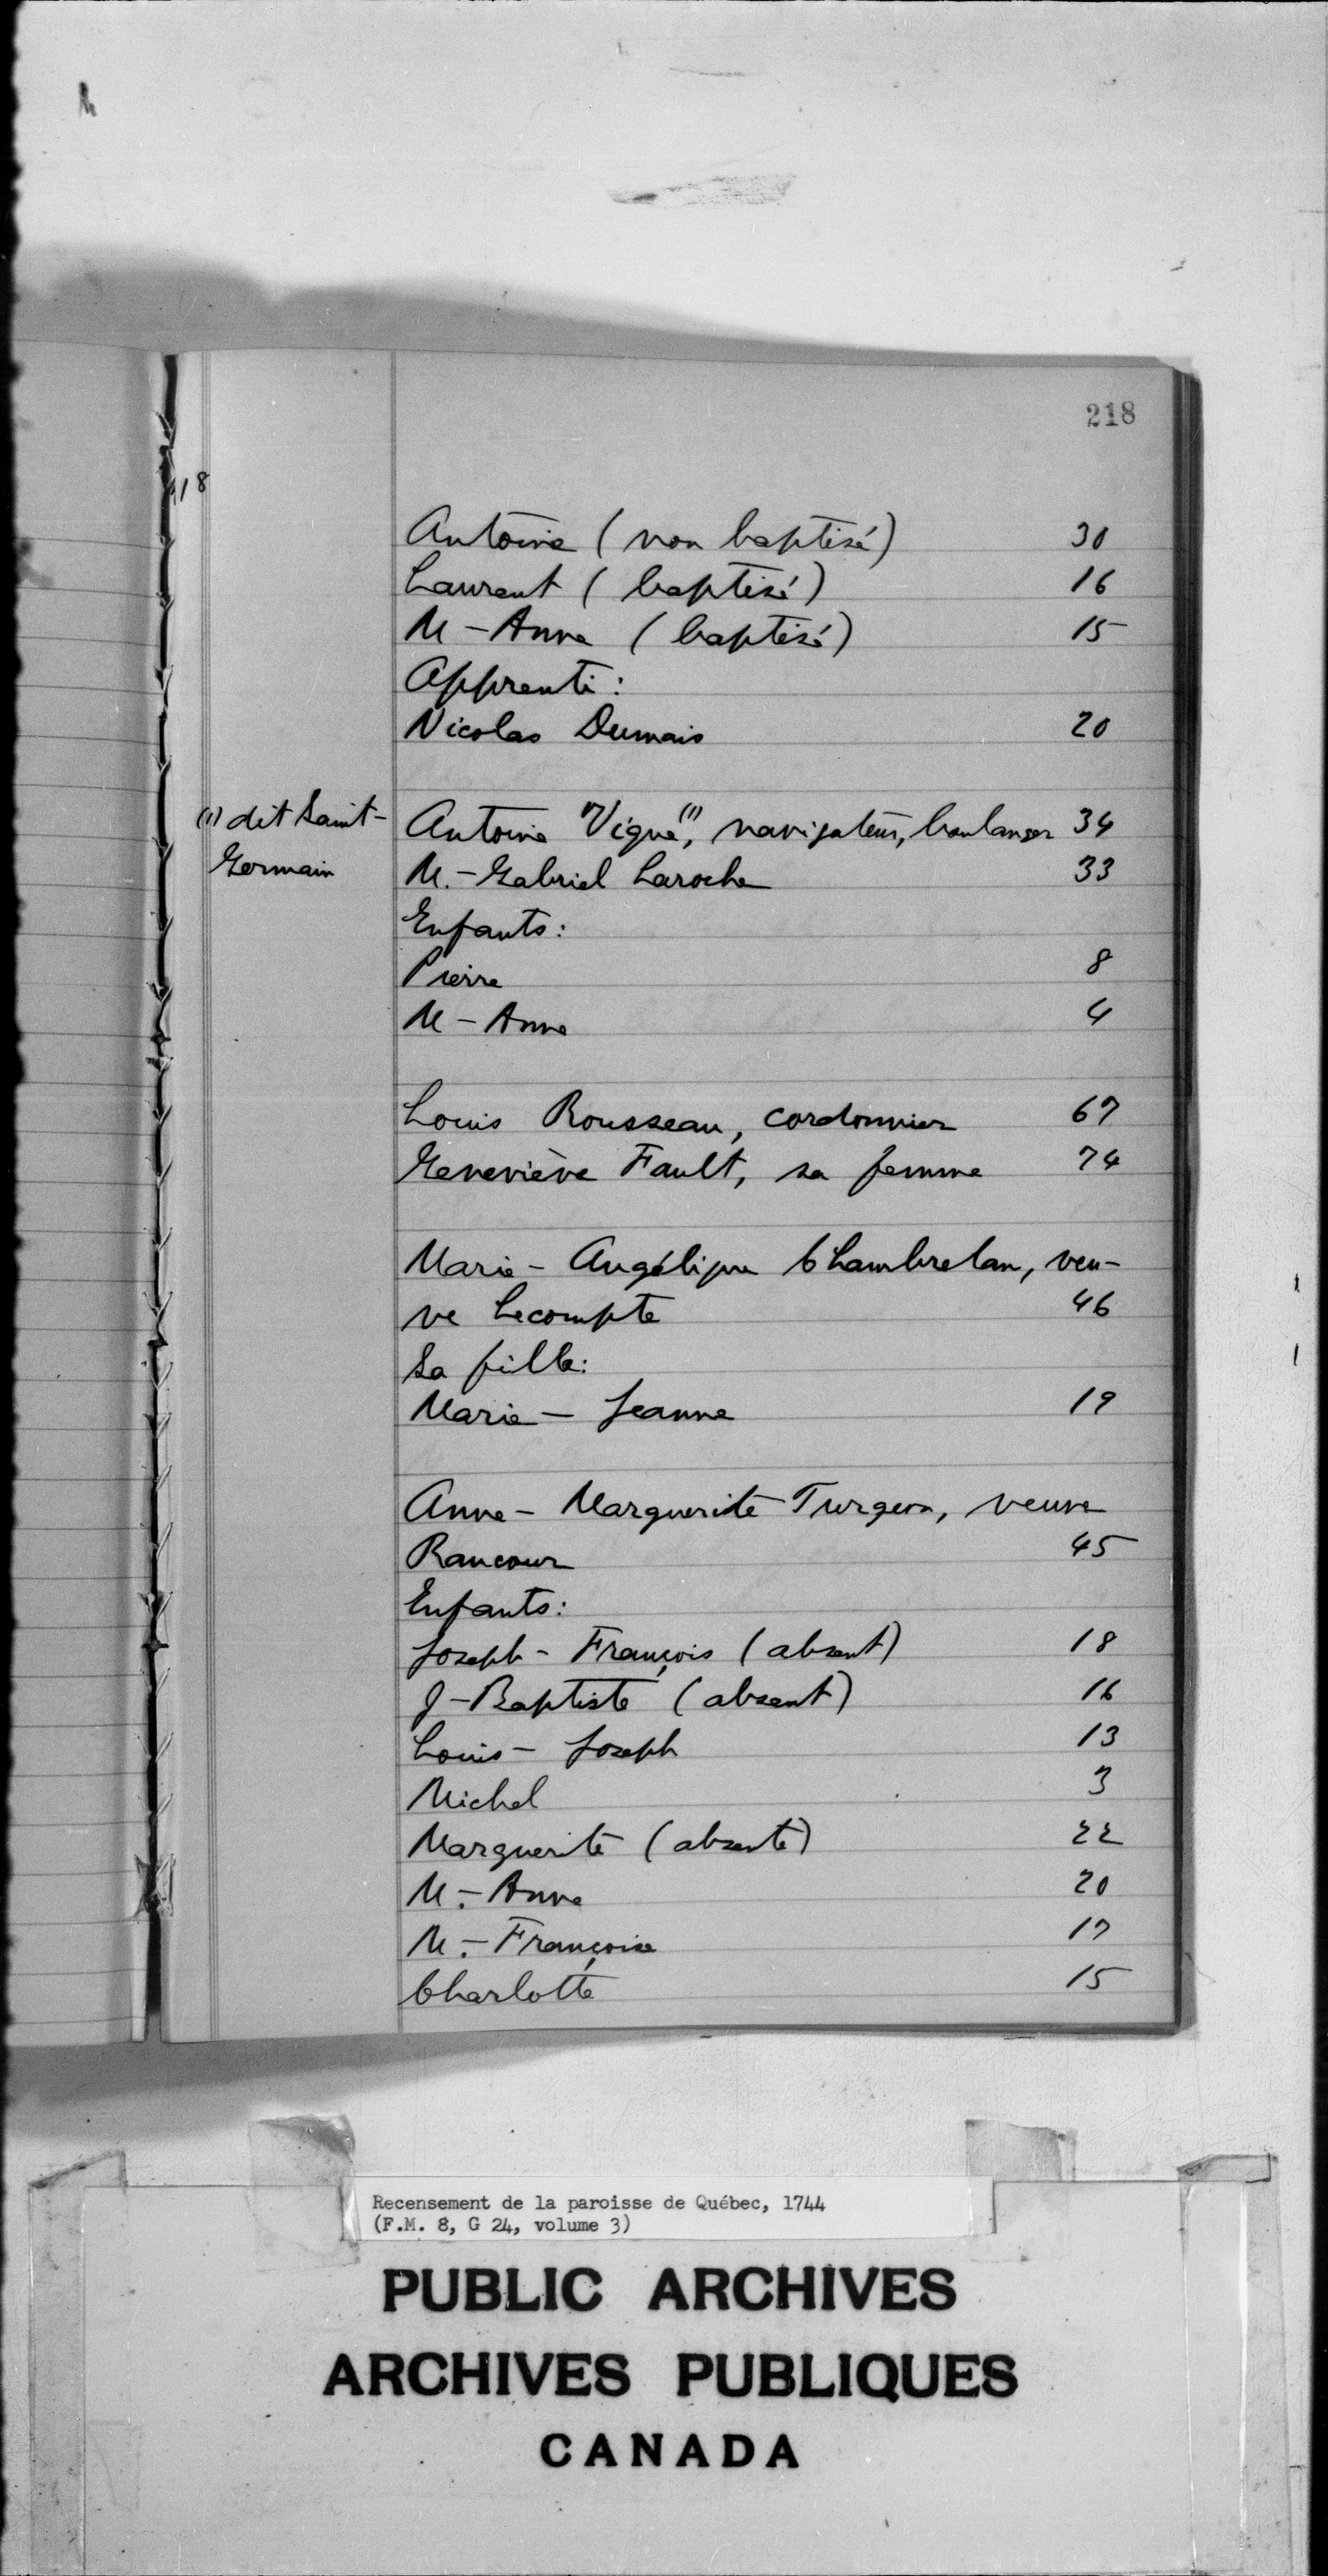 218
18
Antoine (non baptisé) 30
Laurent (baptisé) 16
M-Anne (baptisé) 15
Apprenti:
Nicolas Dumais 20
(1) dit Saint-
Germain
Antoine "Vigné"(1), navigateur, boulanger 34
M.-Gabriel Laroche 33
Enfants:
Pierre 8
M-Anne 4
Louis Rousseau, cordonnier 67
Geneviève Fault, sa femme 74
Marie-Angélique Chambrelan, veu-
ve Lecompte 46
Sa fille:
Marie-Jeanne 19
Anne-Marguerite Turgeon, veuve
Rancour 45
Enfants:
Joseph-François (absent) 18
J-Baptiste (absent) 16
Louis-Joseph 13
Michel 3
Marguerite (absente) 22
M.-Anne 20
M.-Françoise 17
Charlotte 15
Recensement de la paroisse de Québec, 1744
(F.M. 8, G 24, volume 3)
PUBLIC ARCHIVES
ARCHIVES PUBLIQUES
CANADA